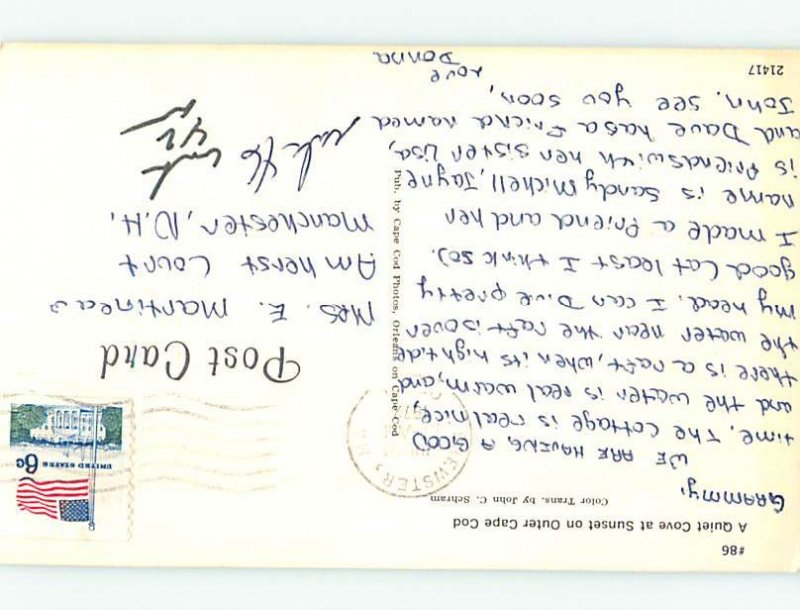 #86
A Quiet Cove at Sunset on Outer Cape Cod
Color Trans. by John C. Schram
GRAMMY,
WE ARE HAVING A GOOD
time. The cottage is real nice,
and the water is real warm, and
there is a raft, when its high tide
the water near the raft is over
my head. I can Dive pretty
good (at least I think so).
I made a friend and her
name is Sandy Michell, Jayne
is friends with her sister Lisa,
and Dave has a friend named
John. see you soon,
Love
Donna
21417
Pub. by Cape Cod Photos, Orleans on Cape Cod
EWSTER,
UNITED STATES 6c
Post Card
MRS. E. Martineau
Amherst Court
Manchester, N.H.